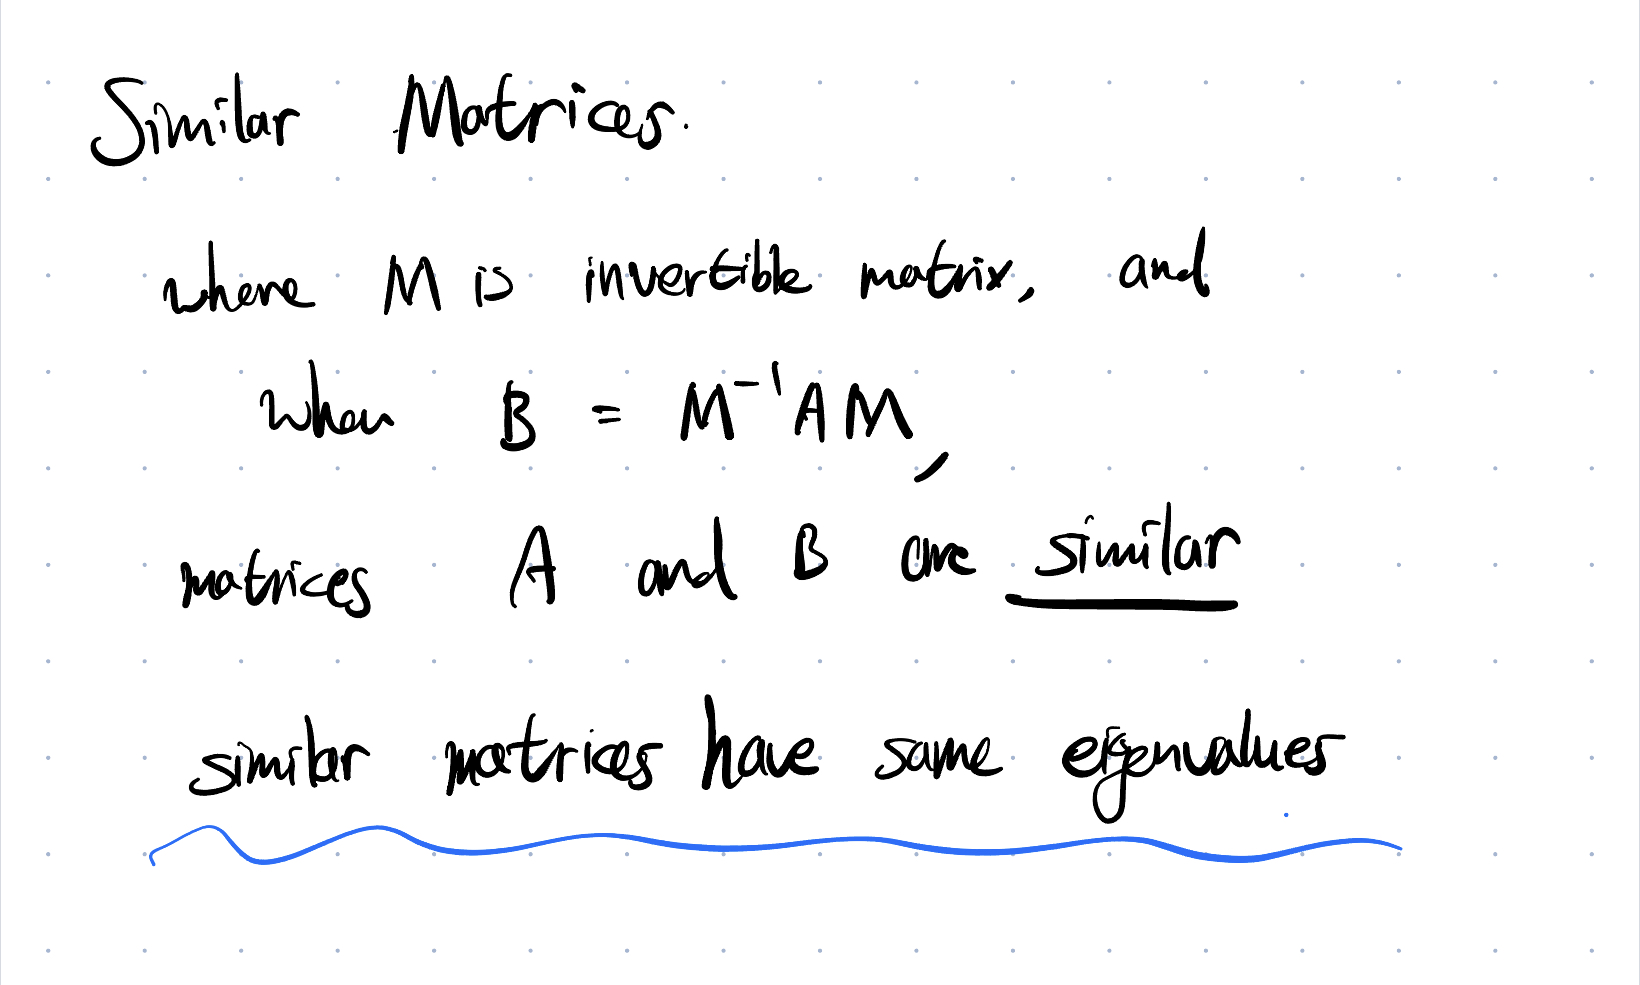 Similar Matrices.
where M is invertible matrix, and
when B = M⁻¹AM,
matrices A and B are similar
similar matrices have same eigenvalues